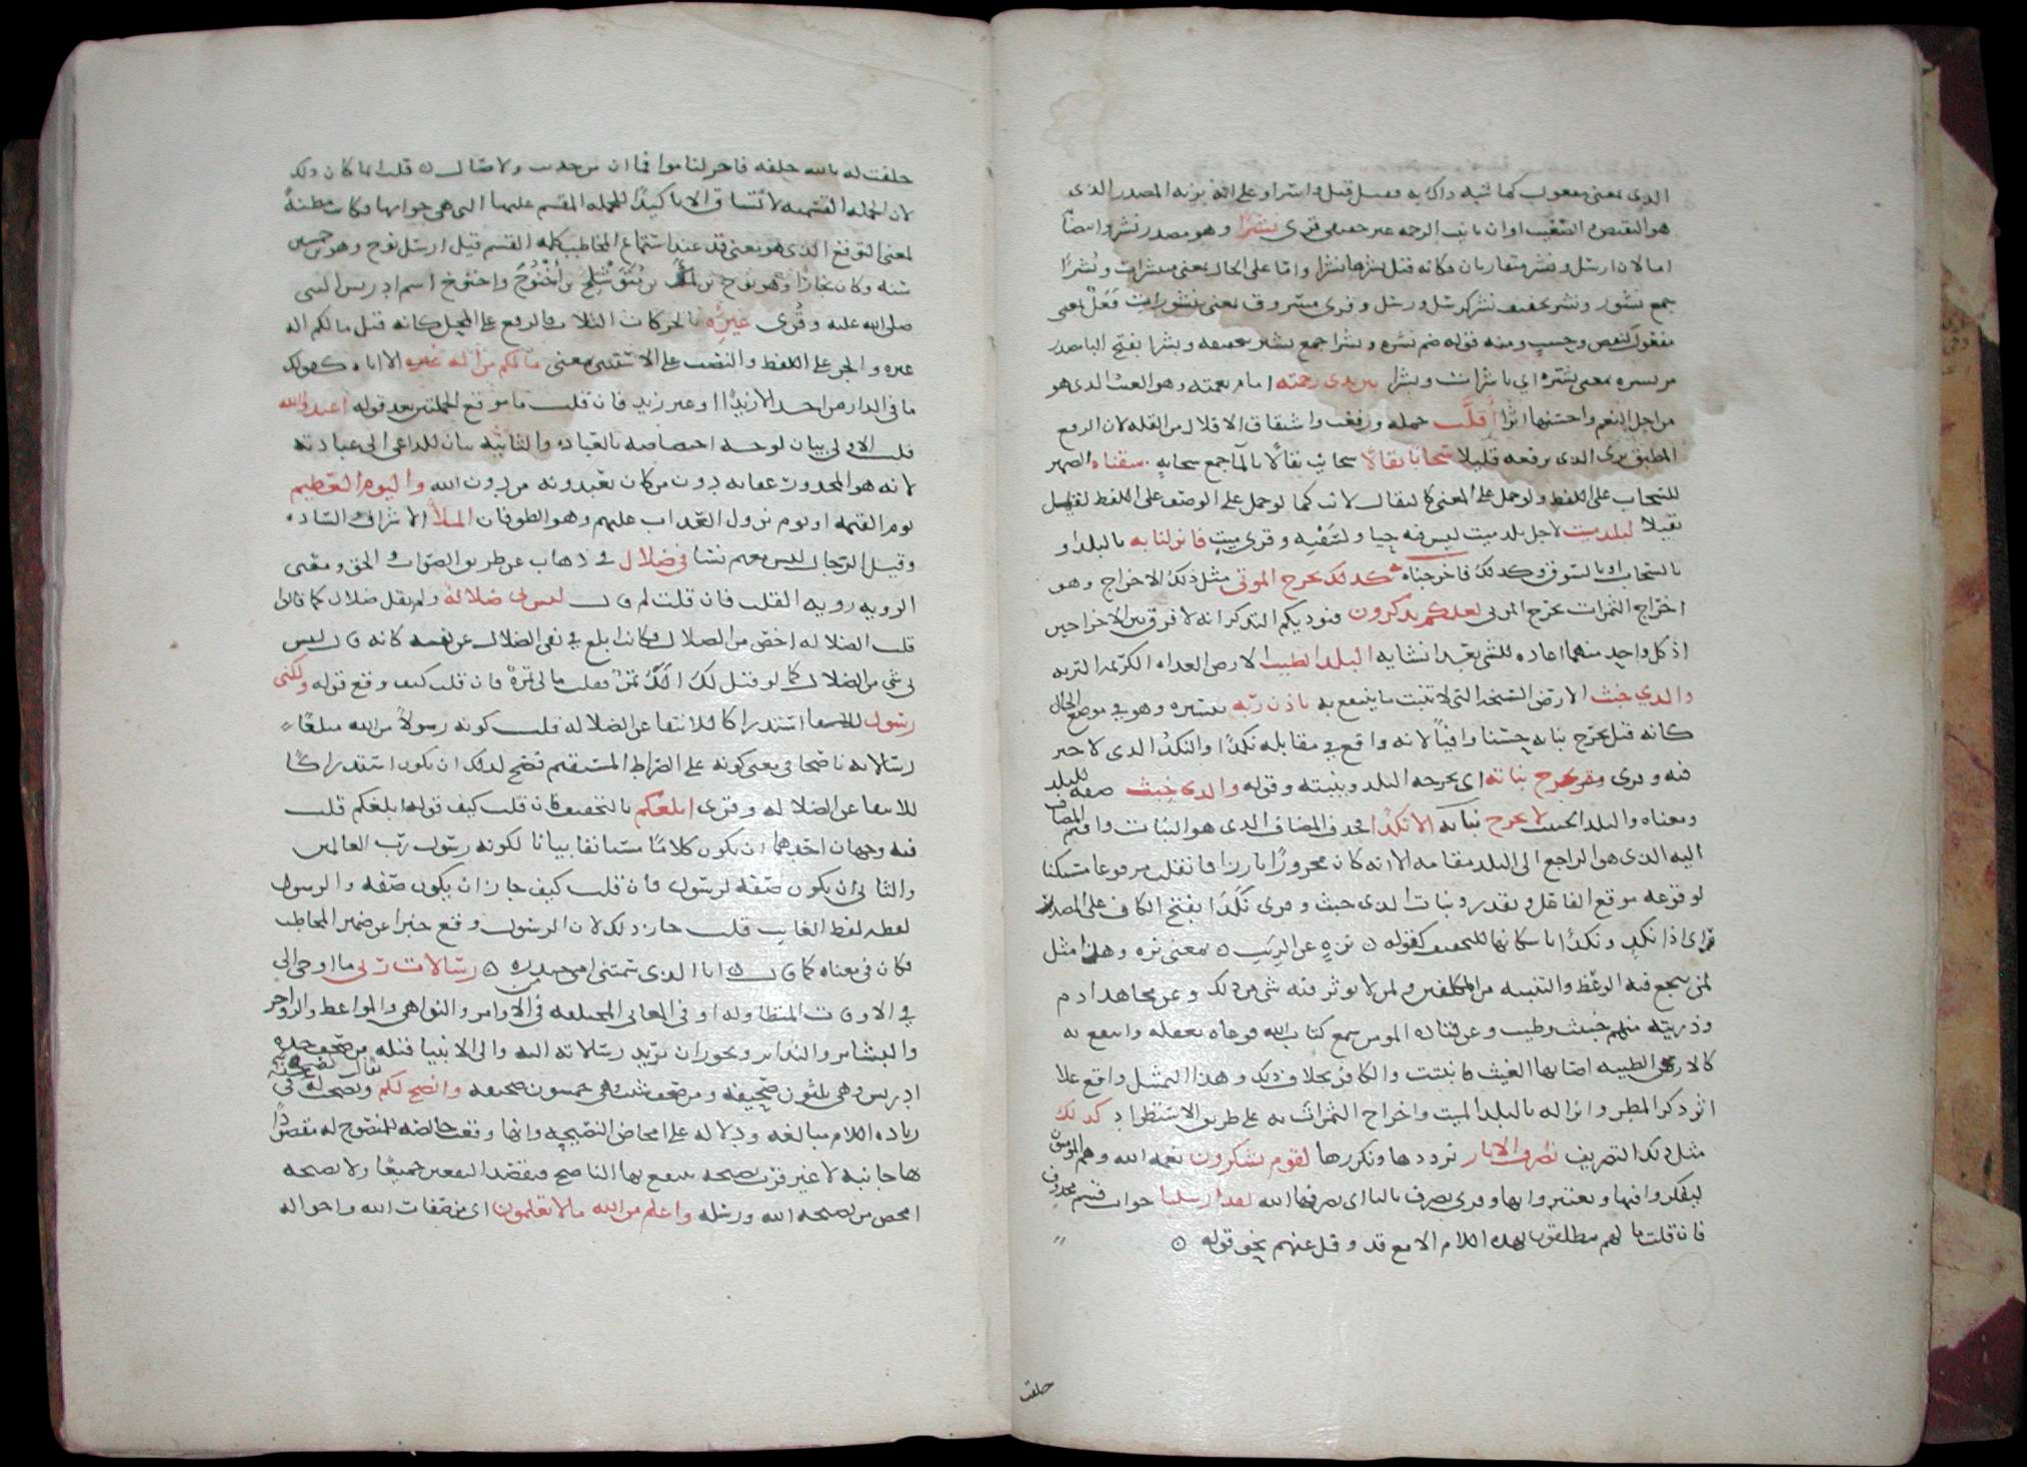 الذي بمعنى مفعول كما شبه ذاك به فقيل قتلا واسرا او على انه بزنه المصدر الذي
هو النقيض والضغيب او ان تانيث الرحمة غير حقيقي قرى نشرا وهو مصدر نشر وانتصابه
اما لان ارسل ونشر متقاربان فكانه قيل نشرها نشرا واما على الحال بمعنى منتشرات ونُشُرًا
جمع نشور ونشر بتخفيف نشر كرسل ورسل وقرى مسروق نشرا بمعنى منشورات فَعَلٌ بمعنى
مفعول كنقض وحسب ومنه قولهم ضم نشره وبشرا جمع بشير بتخفيفه وبشرا بفتح البا مصدر
من بشره بمعنى بشّره اي باشرات وبشرا بين يدى رحمته امام نعمته وهو الغيث الذي هو
من اجل النعم واحسنها اثرا أقلَّت حملت ورفعت واشتقاق الاقلال من القلة لان الرافع
المطيق يرى الذي يرفعه قليلا سحابا ثقالا سحائب ثقالا بالما جمع سحابه سقناه الضمير
للسحاب على اللفظ ولو حمل على المعنى كالثقال لانث كما لو حمل على الوصف على اللفظ لقيل
ثقيلا لبلد ميت لاجل بلد ميت ليس فيه حيا ولسقيه وقرى ميت فانزلنا به بالبلد او
بالسحاب او بالسوق وكذلك فاخرجنا به كذلك نخرج الموتى مثل ذلك الاخراج وهو
اخراج الثمرات نخرج الموتى لعلكم تذكرون فيوديكم التذكر انه لا فرق بين الاخراجين
اذ كل واحد منهما اعاده للشى بعد انشايه البلد الطيب الارض العذاه الكريمة التربه
والذي خبث الارض السبخة التي لا تنبت ما ينتفع به باذن ربه بتيسيره وهو في موضع الحال
كانه قيل يخرج نباته حسنا وافيا لانه واقع في مقابله نكدا والنكد الذي لا خير
فيه وقرى يخرج نباته اي يخرجه البلد وينبته وقوله والذي خبث صفه للبلد
ومعناه والبلد الخبيث لا يخرج نباته الا نكدا فحذف المضاف الذي هو النبات واقيم المضاف
اليه الذي هو الراجع الى البلد مقامه الا انه كان مجرورا بارزا فانقلب مرفوعا مستكنا
لوقوعه موقع الفاعل او يقدر ونبات الذي خبث وقرى نكَدا بفتح الكاف على المصدر
اي ذا نكد ونكْدا باسكانها للتخفيف كقوله نزه عن الريب بمعنى نزه وهذا مثل
لمن ينجع فيه الوعظ والتنبيه من المكلفين ولمن لا يوثر فيه شي من ذلك وعن مجاهد ادم
وذريته منهم خبيث وطيب وعن قتاده المومن سمع كتاب الله فوعاه بعقله وانتفع به
كالارض الطيبه اصابها الغيث فانبتت والكافر بخلاف ذلك وهذا التمثيل واقع على
اثر ذكر المطر وانزاله بالبلد الميت واخراج الثمرات به على طريق الاستطراد كذلك
مثل ذلك التصريف نصرف الايات نرددها ونكررها لقوم يشكرون نعمه الله وهم المومنون
ليفكروا فيها ويعتبروا بها وقرى يصرف باليا اي يصرفها الله لقد ارسلنا جواب قسم محذوف
فان قلت ما لهم لا ينطقون بهذه اللام الا مع قد وقل عنهم نحو قوله
حلفت
حلفت له بالله حلفه فاجر لناموا فما ان من حديث ولا صال قلت انما كان ذلك
لان الجمله القسميه لا تساق الا تاكيدا للجمله المقسم عليها التي هي جوابها فكانت مظنه
لمعنى التوقع الذي هو معنى قد عند استماع المخاطب كلمه القسم قيل ارسل نوح وهو ابن خمسين
سنه وكان نجارا وهو نوح بن لمك بن متوشلخ بن اخنوخ واخنوخ اسم ادريس النبي
صلى الله عليه وقُرى غيره بالحركات الثلاث فالرفع على المحل كانه قيل ما لكم اله
غيره والجر على اللفظ والنصب على الاستثنى بمعنى ما لكم من اله غيره الا اياه كقولك
ما في الدار من احد الا زيدا او غير زيد فان قلت ما موقع الجملتين بعد قوله اعبدوا الله
قلت الاولى بيان لوجه اختصاصه بالعباده والثانيه بيان للداعي الى عبادته
لانه هو المحذور عقابه دون من كان يعبدونه من دون الله واليوم العظيم
يوم القيمه او يوم نزول العذاب عليهم وهو الطوفان الملأ الاشراف والساده
وقيل الرجال ليس معهم نسا في ضلال في ذهاب عن طريق الصواب والحق ومعنى
الرويه رويه القلب فان قلت لم قال ليس بى ضلاله ولم يقل ضلال كما قالوا
قلت الضلاله اخص من الضلال فكانت ابلغ في نفي الضلال عن نفسه كانه قال ليس
لي شي من الضلال كما لو قيل لك الك تمر فقلت ما لي تمرة فان قلت كيف وقع قوله ولكني
رسول استدراكا للانتفا عن الضلاله قلت كونه رسولا من الله مبلغا
رسالاته ناصحا في معنى كونه على الصراط المستقيم فصح لذلك ان يكون استدراكا
للانتفا عن الضلاله وقرى ابلغكم بالتخفيف فان قلت كيف قوله ابلغكم قلت
فيه وجهان احدهما ان يكون كلاما مستانفا بيانا لكونه رسول رب العالمين
والثاني ان يكون صفه لرسول فان قلت كيف جاز ان يكون صفه والرسول
لفظه لفظ الغايب قلت جاز ذلك لان الرسول وقع خبرا عن ضمير المخاطب
فكان في معناه كما قال انا الذي سمتني امي حيدره رسالات ربي ما اوحي الي
في الاوقات المتطاوله او في المعاني المختلفه في الاوامر والنواهي والمواعظ والزواجر
والبشاير والنذاير ويجوز ان يريد رسالاته اليه والى الانبيا قبله من صحف جده
ادريس وهي ثلثون صحيفه ومن صحف شيث وهي خمسون صحيفه وانصح لكم يقال نصحته ونصحت له وفي
زياده اللام مبالغه ودلاله على امحاض النصيحه وانها وقعت خالصه للمنصوح له مقصودا
بها جانبه لا غير فرب نصيحه ينتفع بها الناصح فيقصد النفعين جميعا ولا نصيحه
امحص من نصيحه الله ورسله واعلم من الله ما لا تعلمون اي من صفات الله واحواله